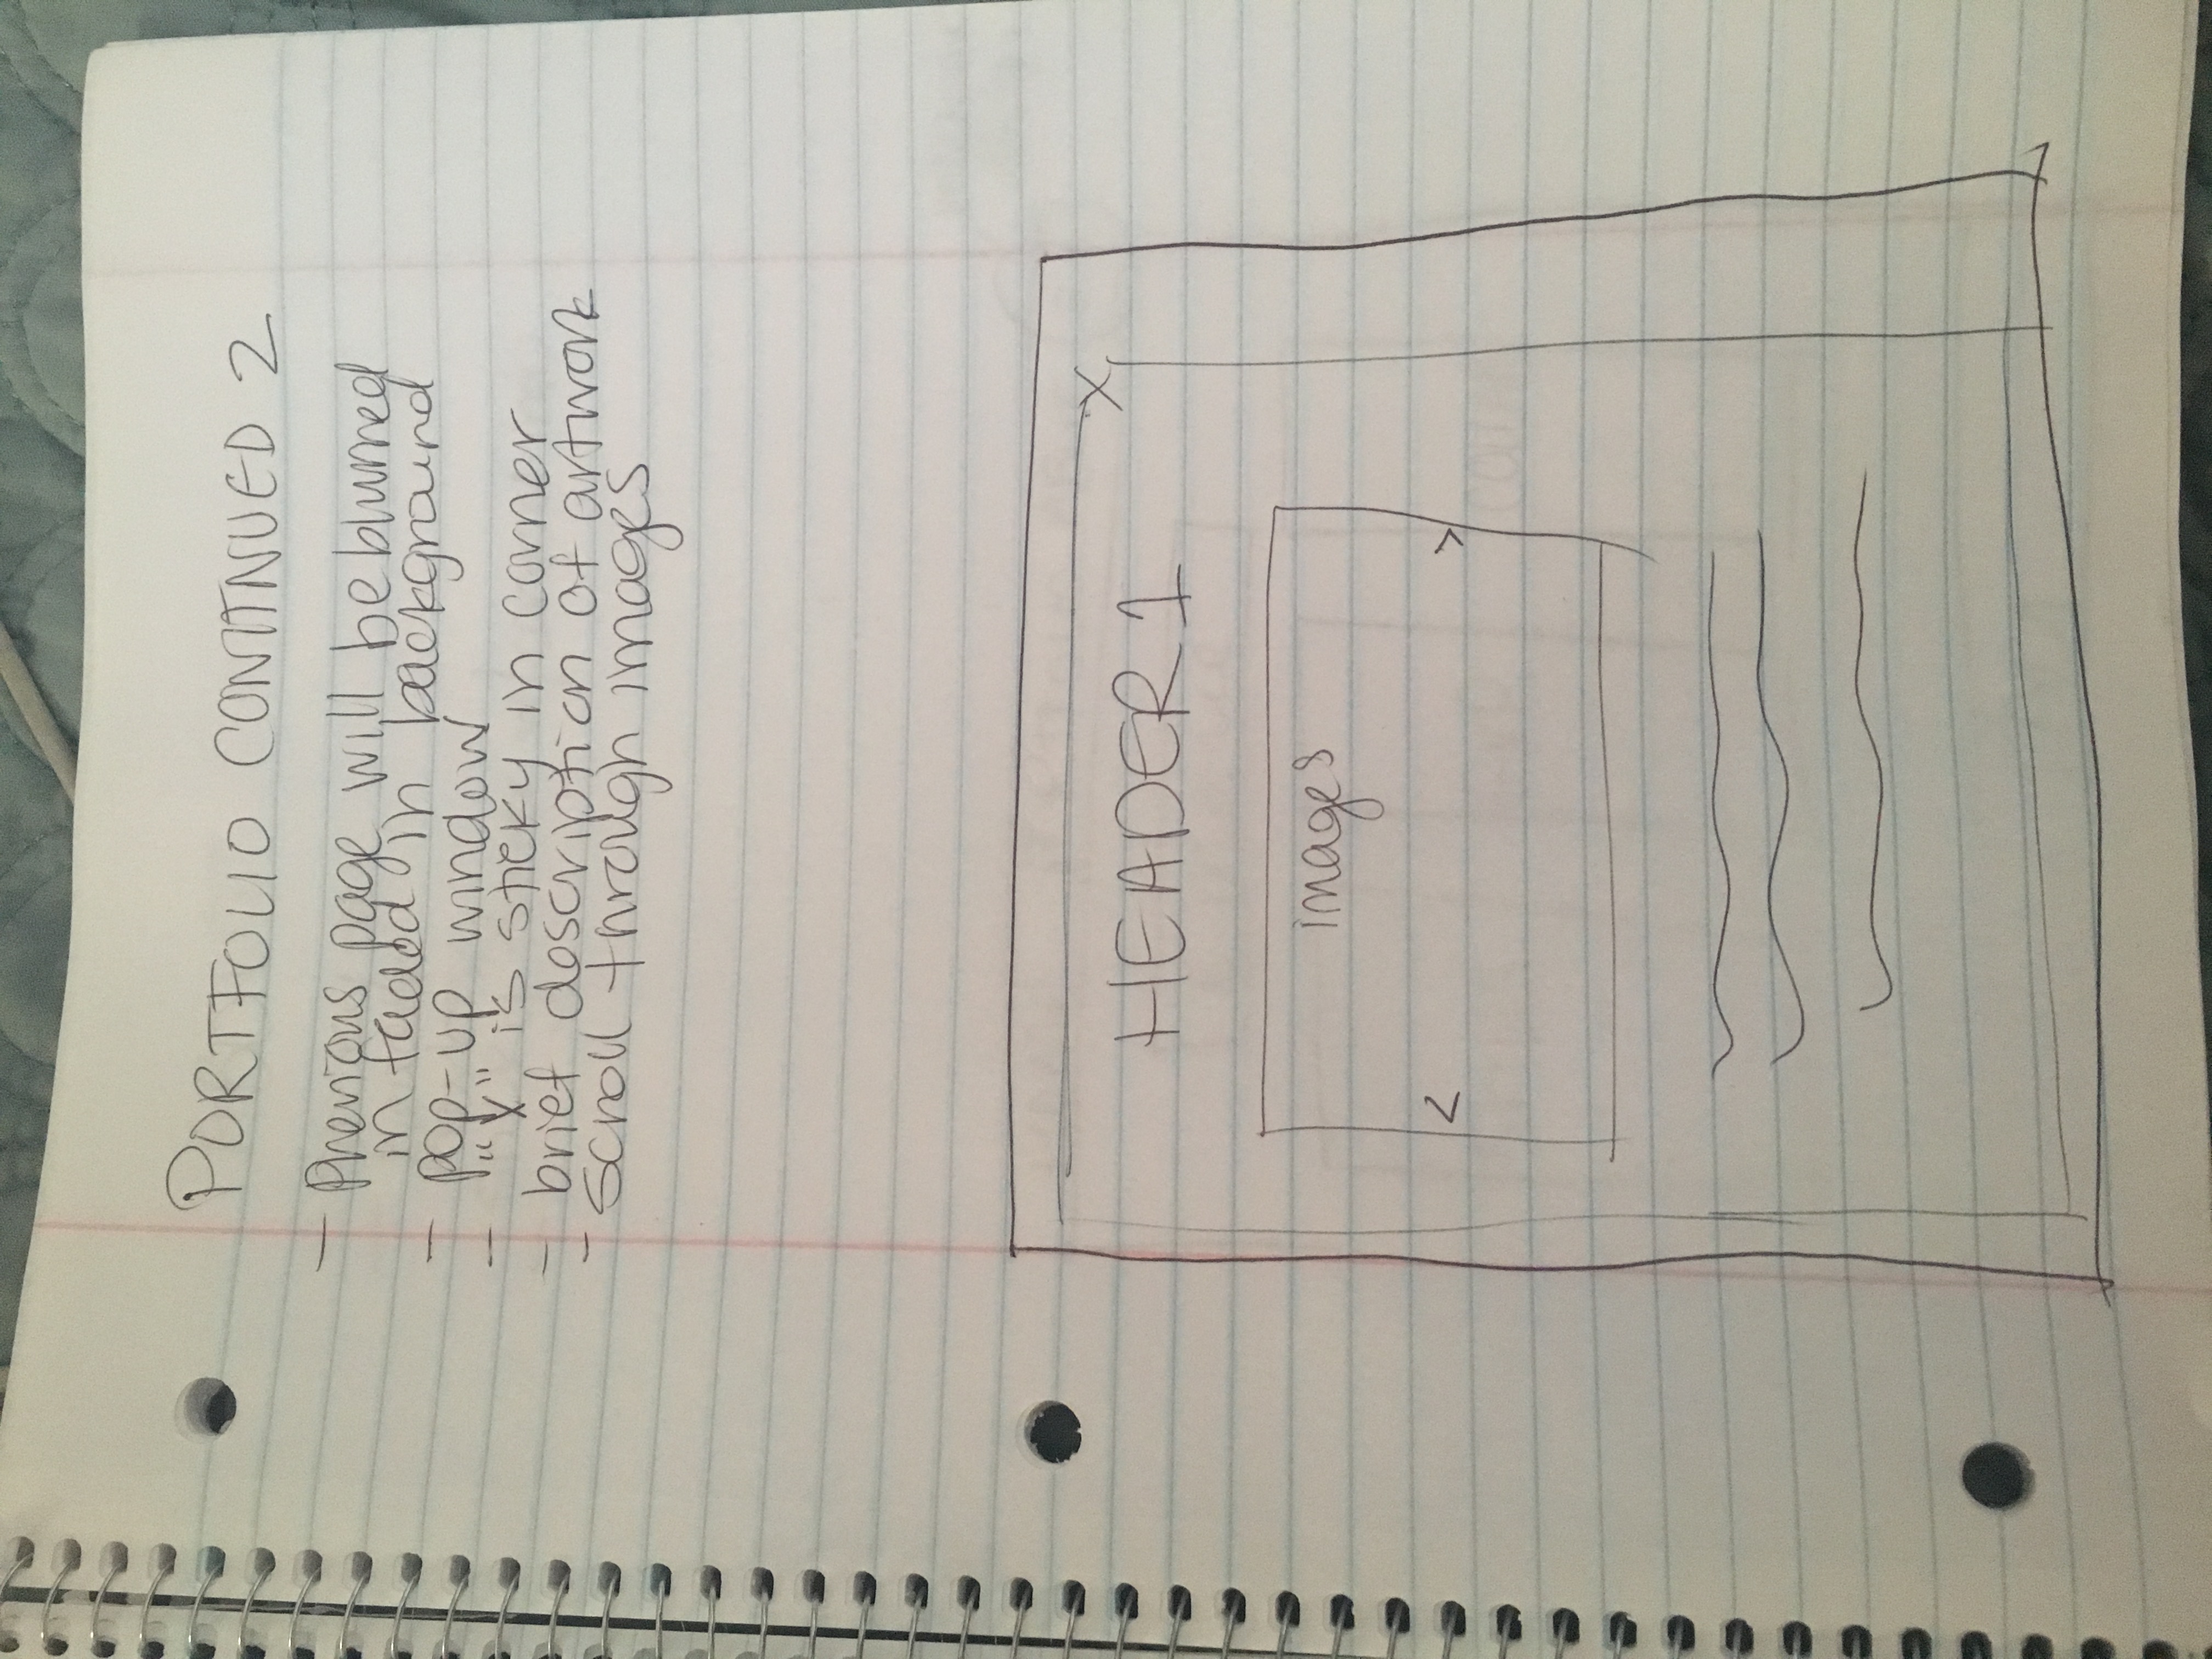 PORTFOLIO CONTINUED 2
- Previous page will be blurred
in faded in background
- pop-up window
- "X" is sticky in corner
- brief description of artwork
- scroll through images
X
HEADER 1
images
< >